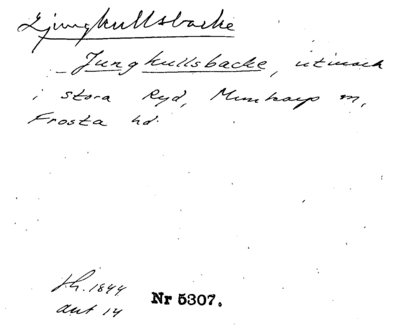 Ljungkullsbacke
Jungkullsbacke, utmark
i stora Ryd, Munkarp sn,
Frosta hd.
Sk. 1844
akt 14 Nr 5307.